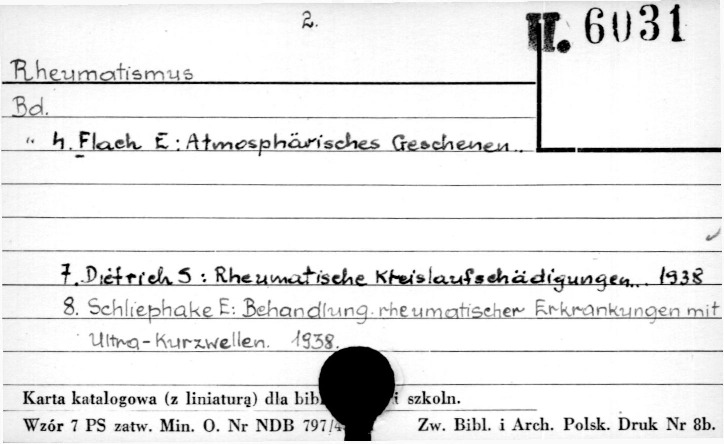 2.
II. 6031
Rheumatismus
Bd.
" 4. Flach E: Atmosphärisches Geschenen..
7. Dietrich S: Rheumatische Kreislaufschädigungen... 1938
8. Schliephake E: Behandlung rheumatischer Erkrankungen mit
Ultra-Kurzwellen. 1938.
Karta katalogowa (z liniaturą) dla i szkoln.
Wzór 7 PS zatw. Min. O. Nr NDB Zw. Bibl. i Arch. Polsk. Druk Nr 8b.